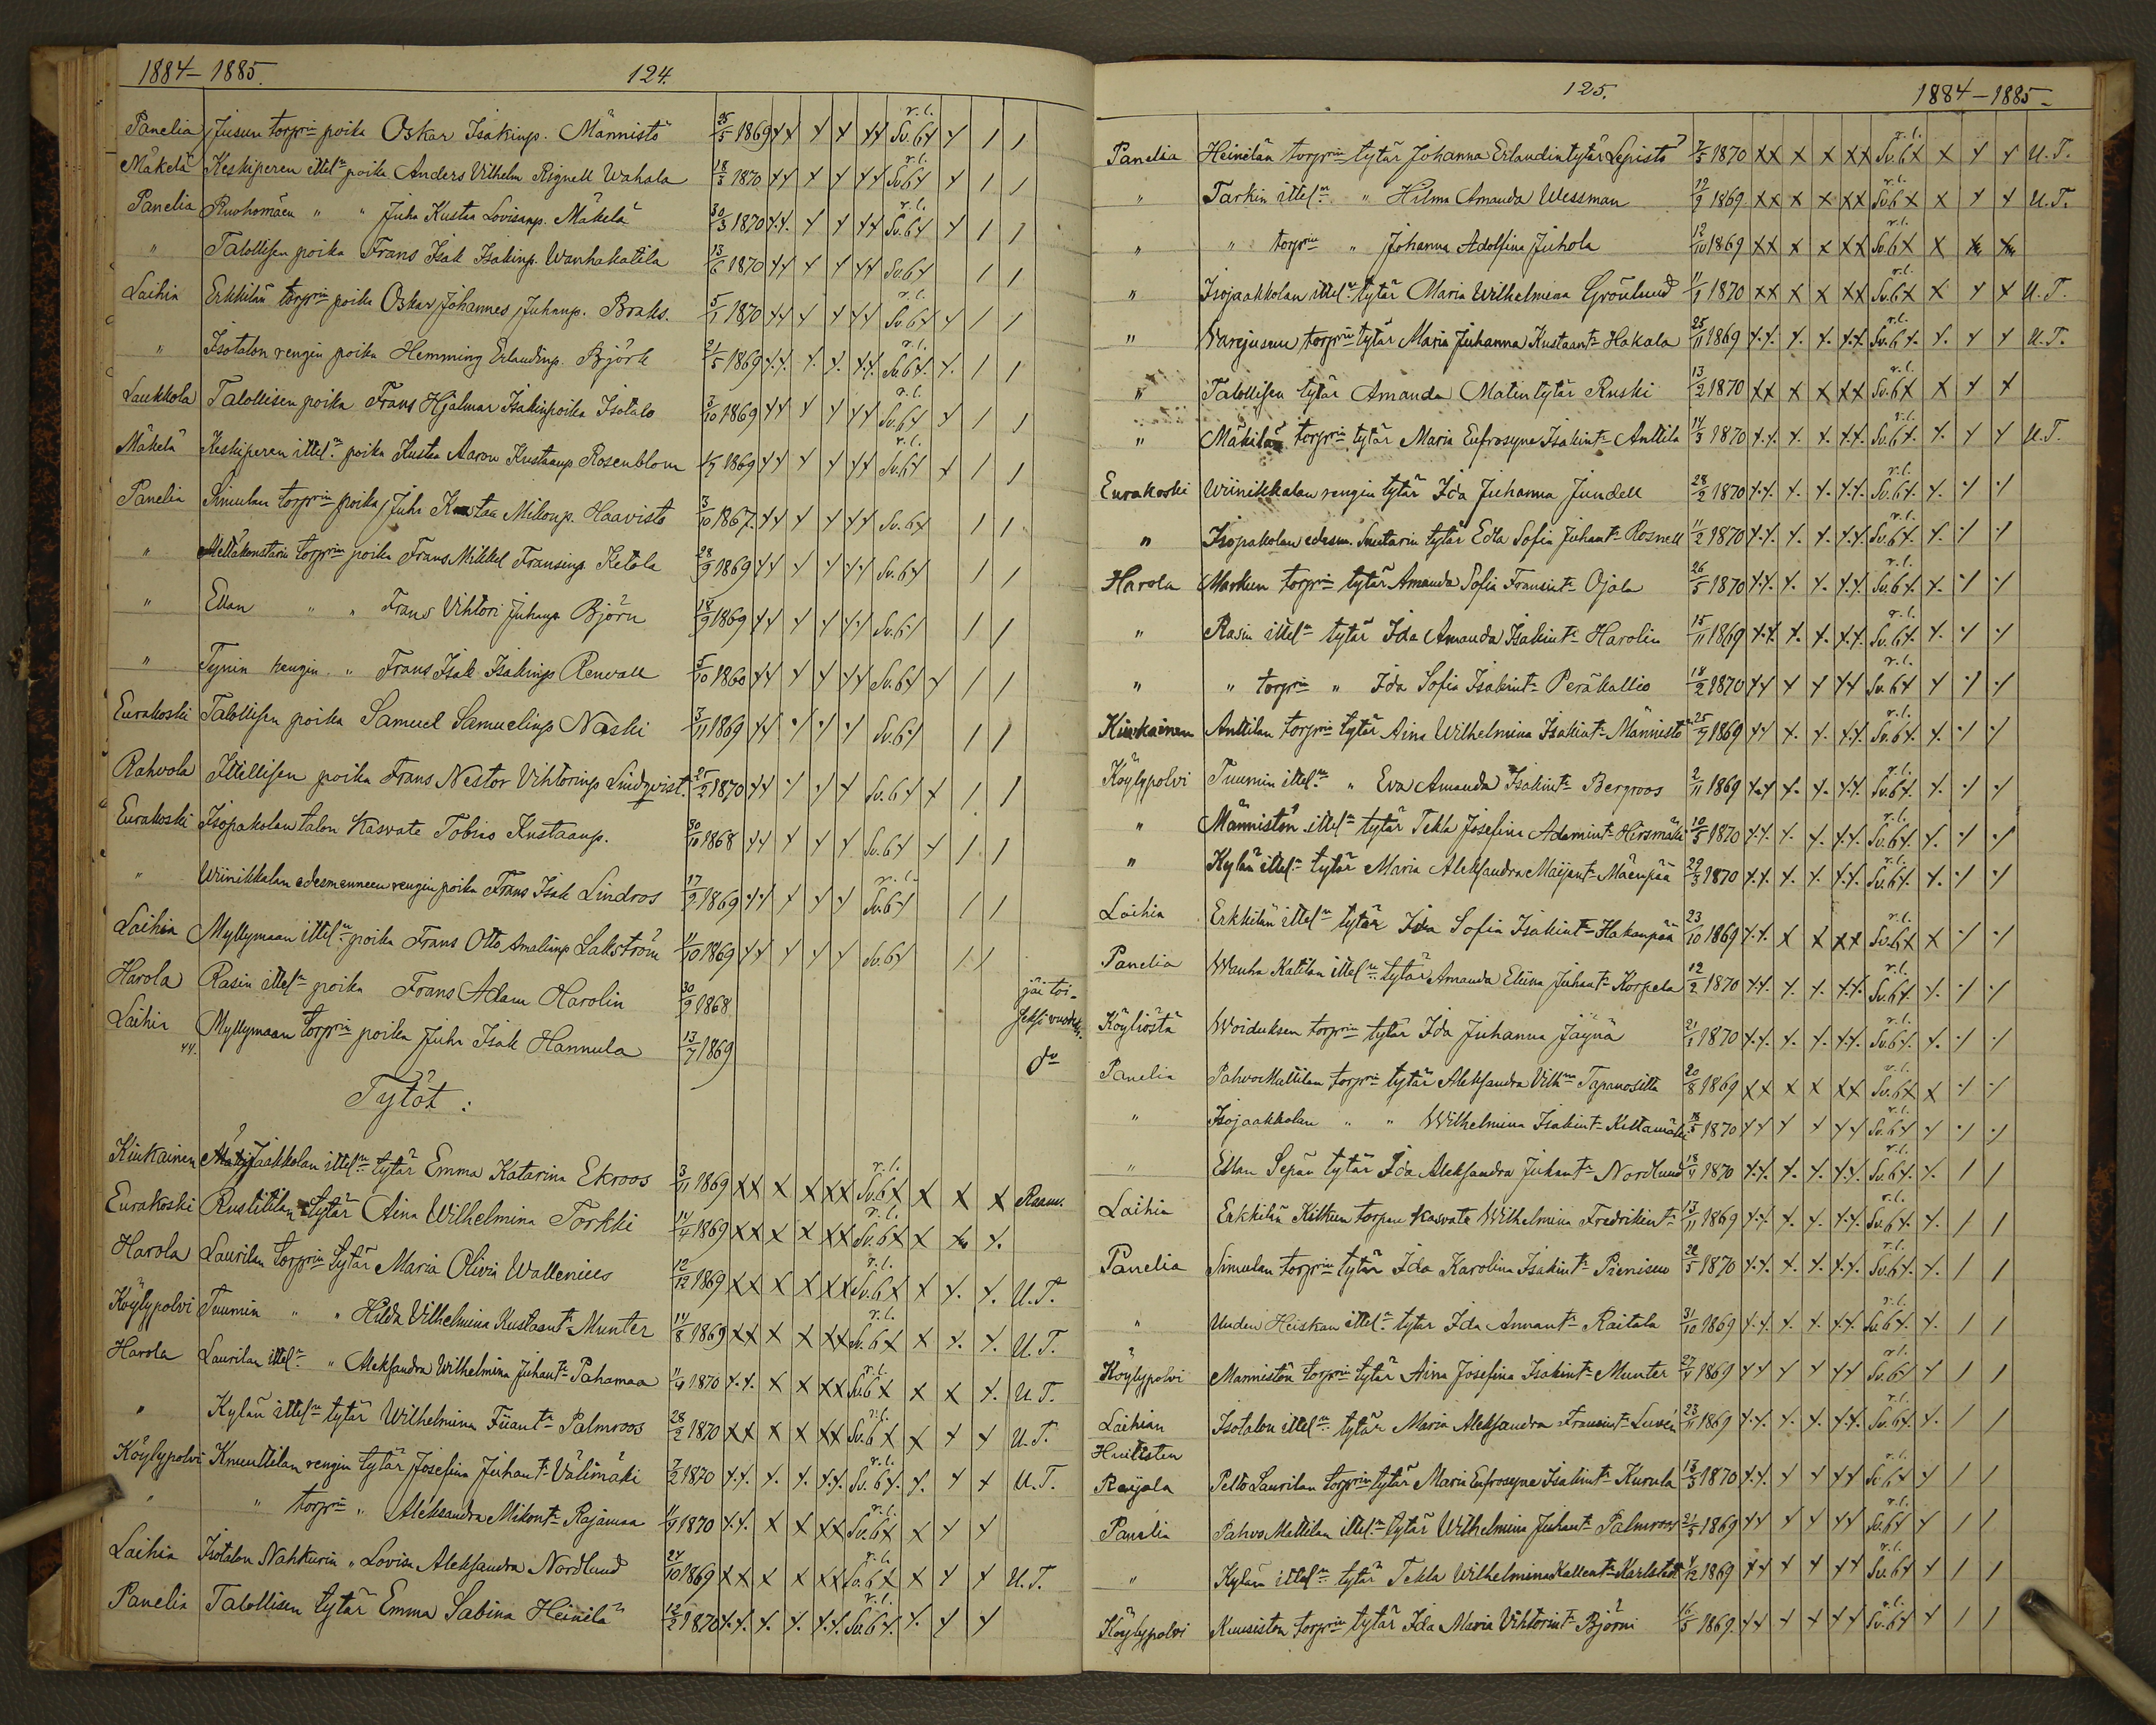 1884-1885.
124.
Panelia Juusun torprin poika Oskar Isakinp. Männistö 25/5 1869 xx x x xx r.l. Sv.6x x / /
Mäkelä Keskiperen ittel:n poika Anders Vilhelm Rignell Wahala 18/3 1870 xx x x xx r.l. Sv.6x x / /
Panelia Ruohomäen " " Juha Kustaa Lovisanp. Mäkelä 30/3 1870 xx x x xx r.l. Sv.6x x / /
" Talollisen poika Frans Isak Isakinp. Wanhakatila 13/6 1870 xx x x xx Sv.6x / /
Laihia Erkkilän torprin poika Oskar Johannes Juhanp. Braks. 5/1 1870 xx x x xx r.l. Sv.6x x / /
" Isotalon rengin poika Hemming Erlandinp. Björk 21/5 1869 x.x. x. x. x.x. r.l. Sv.6x. x. / /
Laukkola Talollisen poika Frans Hjalmar Isakinpoika Isotalo 3/10 1869 xx x x xx r.l. Sv.6x x / /
Mäkelä Keskiperen ittel:n poika Kustaa Aaron Kustaanp. Rosenblom 1/7 1869 xx x x xx r.l. Sv.6x x / /
Panelia Simulan torprin poika Juha Kustaa Mikonp. Haavisto 3/10 1867. xx x x xx Sv.6x / /
" torprin poika Frans Mikkel Fransinp. Ketola 28/9 1869 xx x x xx Sv.6x / /
" Ellan " " Frans Vihtori Juhanp. Björn 18/9 1869 xx x x xx Sv.6x / /
" Tynin rengin " Frans Isak Isakinp Renvall 5/10 1860 xx x x xx Sv.6x x / /
Eurakoski Talollisen poika Samuel Samuelinp Naski 3/11 1869 xx x x x Sv.6x / /
Rahvola Ittellisen poika Frans Nestor Vihtorinp Lindqvist. 25/2 1870 xx x x x Sv.6x x / /
Eurakoski Isopakolan talon Kasvate Tobias Kustaanp. 30/10 1868 xx x x x Sv.6x x / /
" Wiinikkalan edesmenneen rengin poika Frans Isak Lindros 17/2 1869 xx x x x r.l. Sv.6x / /
Laihia Myllymaan ittel:n poika Frans Otto Amalianp Lakström 11/10 1869 xx x x x Sv.6x / /
Harola Rasin ittel:n poika Frans Adam Harolin 30/9 1868 jäi toi-
seksi vuodeksi.
Laihia Myllymaan torprin poika Juha Isak Hannula 13/7 1869 do
44.
Tytöt :
Kiukainen Jaakkolan ittel:n tytär Emma Katarina Ekroos 3/11 1869 xx x x xx r.l. Sv.6x x x x
Eurakoski Rustitilan tytär Aina Wilhelmina Torkki 14/4 1869 xx x x xx r.l. Sv.6x x x x.
Harola Laurilan torprin tytär Maria Olivia Wallenius 12/12 1869 xx x x xx r.l. Sv.6x x x. x. U.T.
Köylypolvi Tuumin " " Hilda Vilhelmina Kustaant:r Munter 14/8 1869 xx x x xx r.l. Sv.6x x x. x. U.T.
Harola Laurilan ittel:n " Aleksandra Wilhelmina Juhant:r Pahamaa 11/9 1870 x.x. x x xx r.l. Sv.6x x x x. U.T.
" Kylän ittel:n tytär Wilhelmina Fiiant:r Palmroos 28/2 1870 xx x x xx r.l. Sv.6x x x x U.T.
Köylypolvi Knuuttilan rengin tytär Josefina Juhant:r Välimäki 7/2 1870 x.x. x. x. x.x. r.l. Sv.6x. x. x x U.T.
" " torprin " Aleksandra Mikont:r Rajamaa 11/9 1870 x.x. x x xx r.l. Sv.6x x x x
Laihia Isotalon Nahkurin " Lovisa Aleksandra Nordlund 24/10 1869 xx x x xx r.l. Sv.6x x x x U.T.
Panelia Talollisen tytär Emma Sabina Heinilä 12/2 1870 x.x. x. x. x.x. r.l. Sv.6x. x. x x
125.
1884-1885-
Panelia Heinilän torprin tytär Johanna Erlandintytär Lepistö 7/5 1870 xx x x xx r.l. Sv.6x x x x U.T.
" Tarkin ittel:n " Hilma Amanda Wessman 12/9 1869 xx x x xx r.l. Sv.6x x x x U.T.
" " torprin " Johanna Adolfina Juhola 12/10 1869 xx x x xx r.l. Sv.6x x x x
" Isojaakkolan ittel:n tytär Maria Wilhelmina Grönlund 11/9 1870 xx x x xx r.l. Sv.6x x x x U.T.
" Warejusuu torprin tytär Maria Juhanna Kustaant:r Hakala 25/11 1869 x.x. x. x. x.x. r.l. Sv.6x. x. x x U.T.
" Talollisen tytär Amanda Matintytär Ruski 13/2 1870 xx x x xx r.l. Sv.6x x x x
" Mäkilän torprin tytär Maria Eufrosyne Isakint:r Anttila 14/3 1870 x.x. x. x. x.x. r.l. Sv.6x. x. x x U.T.
Eurakoski Wiinikkalan rengin tytär Ida Juhanna Jundell 28/2 1870 x.x. x. x. x.x. r.l. Sv.6x. x. ·/ ·/
" Isopakolan edesm. Suutarin tytär Edla Sofia Juhant:r Rosnell 11/2 1870 x.x. x. x. x.x. r.l. Sv.6x. x. ·/ ·/
Harola Markun torprin tytär Amanda Sofia Fransint:r Ojala 26/5 1870 x.x. x. x. x.x. r.l. Sv.6x. x. ·/ ·/
" Rasin ittel:n tytär Ida Amanda Isakint:r Harolin 15/11 1869 x.x. x. x. x.x. r.l. Sv.6x. x. ·/ ·/
" " torprin " Ida Sofia Isakint:r Peräkallio 18/2 1870 xx x x xx r.l. Sv.6x x ·/ ·/
Kiukainen Anttilan torprin tytär Aina Wilhelmina Isakint:r Männistö 25/7 1869 xx x. x. x.x. r.l. Sv.6x. x. ·/ ·/
Köylypolvi Tuumin ittel:n " Eva Amanda Isakint:r Bergroos 2/11 1869 xx x. x. x.x. r.l. Sv.6x. x. ·/ ·/
" Männistön ittel:n tytär Tekla Josefina Adamint:r Hirsmäki 10/5 1870 x.x. x. x. x.x. r.l. Sv.6x. x. ·/ ·/
" Kylän ittel:n tytär Maria Aleksandra Maijant:r Mäenpää 29/3 1870 x.x. x. x. x.x. r.l. Sv.6x. x. ·/ ·/
Laihia Erkkilän ittel:n tytär Ida Sofia Isakint:r Hakanpää 23/10 1869 x.x. x x xx r.l. Sv.6x x ·/ ·/
Panelia Wanha Katilan ittel:n tytär Amanda Eliina Juhant:r Korpela 12/2 1870 x.x. x. x. x.x. r.l. Sv.6x. x. ·/ ·/
Köyliöstä Woiduksen torprin tytär Ida Juhanna Jäynä 21/1 1870 x.x. x. x. x.x. r.l. Sv.6x. x. ·/ ·/
Panelia PahvoMattilan torprin tytär Aleksandra Vilh:na Tapanositta 20/8 1869 xx x x xx r.l. Sv.6x x ·/ ·/
" Isojaakkolan " " Wilhelmina Isakint:r Kittamäki 18/5 1870 xx x x xx r.l. Sv.6x x ·/ ·/
" Ellan Sepän tytär Ida Aleksandra Juhant:r Nordlund 18/4 1870 x.x. x. x. x.x. r.l. Sv.6x. x. / /
Laihia Erkkilän torpan kasvate Wilhelmina Fredrikint:r 13/11 1869 x.x. x. x. x.x. r.l. Sv.6x. x. / /
Panelia Simulan torprin tytär Ida Karolina Isakint:r Pieniseu 28/5 1870 x.x. x. x. x.x. r.l. Sv.6x. x. / /
" Uuden Heiskan ittel:n tytär Ida Annant:r Raitala 31/10 1869 x.x. x. x. x.x. r.l. Sv.6x. x. / /
Köylypolvi Männistön torprin tytär Aina Josefina Isakint:r Munter 27/9 1869 xx x x xx r.l. Sv.6x x / /
Laihian Isotalon ittel:n tytär Maria Aleksandra Fransint:r Lusén 23/11 1869 x.x. x. x. x.x. r.l. Sv.6x. x. / /
Huittisten
Raijala Pelto Laurilan torprin tytär Maria Eufrosyne Isakint:r Kurula 13/3 1870 x.x. x x xx r.l. Sv.6x x / /
Panelia Pahvo Mattilan ittel:n tytär Wilhelmina Juhant:r Palmroos 21/5 1869 xx x x xx r.l. Sv.6x x / /
" Kylän ittel:n tytär Tekla Wilhelmina Kallent:r Karlstedt 4/12 1869 xx x x xx r.l. Sv.6x x / /
Köylypolvi Kuusiston torprin tytär Ida Maria Vihtorint:r Björni 16/5 1869. xx x x xx r.l. Sv.6x x / /